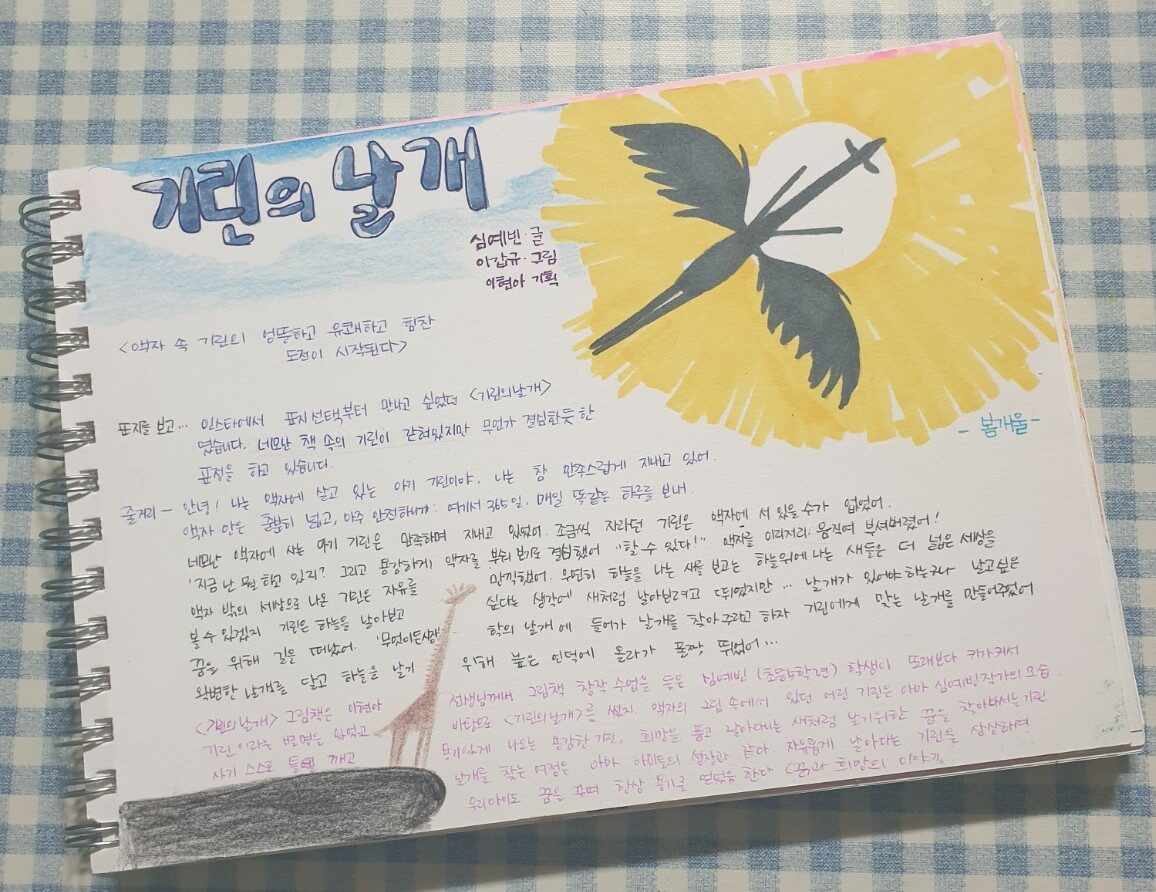 기린의 날개
심예빈·글
이갑규·그림
이현아 기획
<액자 속 기린의 엉뚱하고 유쾌하고 힘찬
도전이 시작된다>
표지를 보고... 인스타에서 표지선택부터 만나고 싶었던 <기린의날개>
였습니다. 네모난 책 속의 기린이 갇혀있지만 무언가 결심한듯한
표정을 하고 있습니다.
- 봄개울 -
줄거리 - 안녕! 나는 액자에 살고 있는 아기 기린이야. 나는 참 만족스럽게 지내고 있어.
액자 안은 충분히 넓고, 아주 안전하니까. 여기서 365일, 매일 똑같은 하루를 보내.
네모난 액자에 사는 아기 기린은 만족하며 지내고 있었어. 조금씩 자라던 기린은 액자에 서 있을 수가 없었어.
'지금 난 뭘 하고 있지? 그리고 용감하게 액자를 부숴 보기로 결심했어 "할 수 있다!" 액자를 이리저리 움직여 부셔버렸어!
액자 밖의 세상으로 나온 기린은 자유를 만끽했어. 우연히 하늘을 나는 새를 보고는 하늘위에 나는 새들은 더 넓은 세상을
볼 수 있겠지 기린은 하늘을 날아보고 싶다는 생각에 새처럼 날아보려고 뛰었지만... 날개가 있어야 하는구나 날고 싶은
꿈을 위해 길을 떠났어. '무엇이든 학의 날개에 들어가 날개를 찾아 주라고 하자 기린에게 맞는 날개를 만들어주었어
완벽한 날개를 달고 하늘을 날기 위해 높은 언덕에 올라가 폴짝 뛰었어...
<기린의날개> 그림책은 이현아 선생님께서 그림책 창작 수업을 들은 심예빈 (초등5학년) 학생이 또래보다 키가커서
기린이라는 별명을 얻었고 바탕으로 <기린의날개>를 썼지. 액자의 그림 속에서 있던 어린 기린은 아마 심예빈작가의 모습.
자기 스스로 틀을 깨고 용기있게 나오는 용감한 기린. 희망을 품고 날아다니는 새처럼 날기위한 꿈을 찾아나서는 기린
날개를 찾는 여정은 아마 아이들의 성장과 같다 자유롭게 날아다는 기린을 상상하며
우리아이도 꿈을 꾸며 항상 용기를 얻었음 한다 <꿈과 희망의 이야기